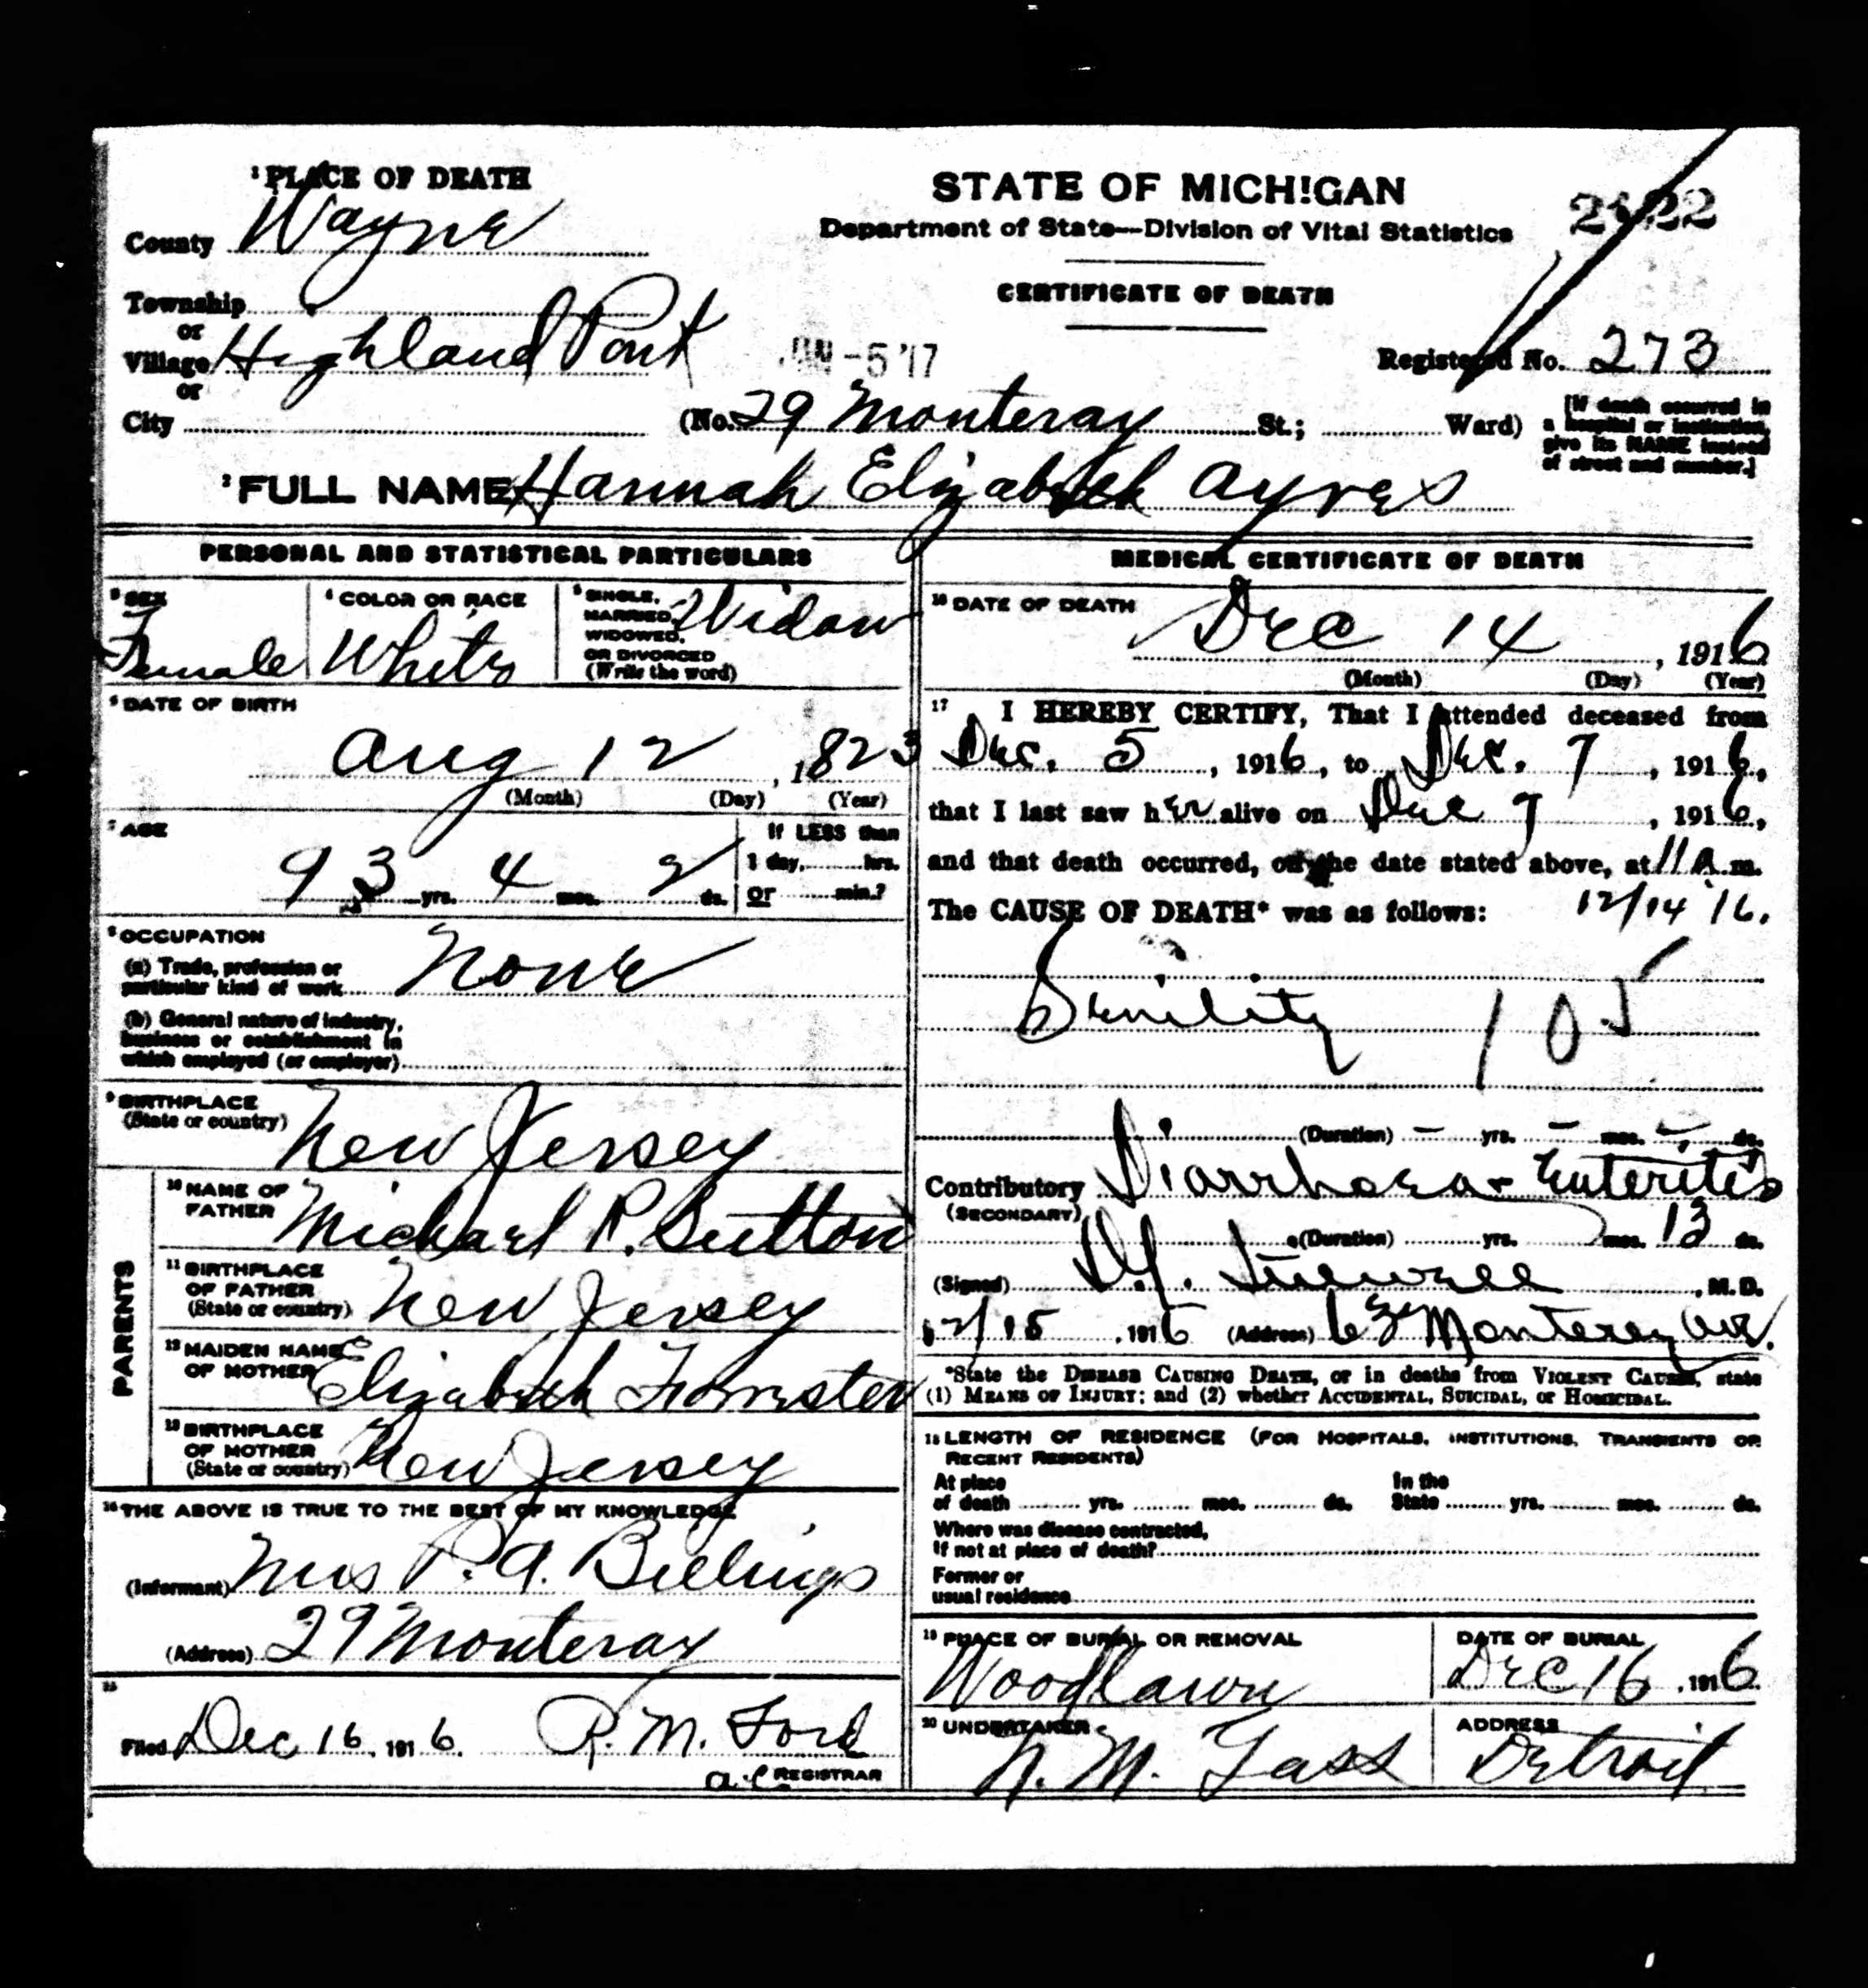 ¹PLACE OF DEATH
STATE OF MICH!GAN
Department of State—Division of Vital Statistics
CERTIFICATE OF DEATH
County Wayne
Township
or
Village Highland Park
or
City
JAN -5 '17
Registered No. 273
(No. 29 Monteray St.; Ward)
[If death occurred in
a hospital or institution,
give its NAME instead
of street and number.]
² FULL NAME Hannah Elizabeth Ayres
PERSONAL AND STATISTICAL PARTICULARS
³ SEX
Female
⁴ COLOR OR RACE
White
⁵ SINGLE,
MARRIED,
WIDOWED,
OR DIVORCED
(Write the word)
Widow
⁶ DATE OF BIRTH
Aug 12, 1823
(Month) (Day) (Year)
⁷ AGE
93 yrs. 4 mos. 2 ds.
If LESS than
1 day, hrs.
or min.?
⁸ OCCUPATION
(a) Trade, profession or
particular kind of work None
(b) General nature of industry,
business or establishment in
which employed (or employer)
⁹ BIRTHPLACE
(State or country) New Jersey
PARENTS
¹⁰ NAME OF
FATHER Michael P. Sutton
¹¹ BIRTHPLACE
OF FATHER
(State or country) New Jersey
¹² MAIDEN NAME
OF MOTHER Elizabeth Forrester
¹³ BIRTHPLACE
OF MOTHER
(State or country) New Jersey
¹⁴ THE ABOVE IS TRUE TO THE BEST OF MY KNOWLEDGE
(Informant) Mrs P. A. Billings
(Address) 29 Monteray
¹⁵
Filed Dec 16, 1916. R. M. Ford
REGISTRAR
MEDICAL CERTIFICATE OF DEATH
¹⁶ DATE OF DEATH
Dec 14, 1916
(Month) (Day) (Year)
¹⁷ I HEREBY CERTIFY, That I attended deceased from
Dec. 5, 1916, to Dec. 7, 1916,
that I last saw her alive on Dec 7, 1916,
and that death occurred, on the date stated above, at 11 A.m.
The CAUSE OF DEATH* was as follows: 12/14 '16.
Senility
(Duration) – yrs. – mos. ds.
Contributory Diarrhoea - Enteritis
(SECONDARY)
(Duration) yrs. mos. 13 ds.
(Signed) , M.D.
12/15, 1916 (Address) Monterey Ave.
*State the DISEASE CAUSING DEATH, or in deaths from VIOLENT CAUSES, state
(1) MEANS OF INJURY; and (2) whether ACCIDENTAL, SUICIDAL, or HOMICIDAL.
¹⁸ LENGTH OF RESIDENCE (FOR HOSPITALS, INSTITUTIONS, TRANSIENTS OR
RECENT RESIDENTS)
At place
of death yrs. mos. ds.
In the
State yrs. mos. ds.
Where was disease contracted,
If not at place of death?
Former or
usual residence
¹⁹ PLACE OF BURIAL OR REMOVAL
Woodlawn
DATE OF BURIAL
Dec 16, 1916
²⁰ UNDERTAKER
ADDRESS
Detroit